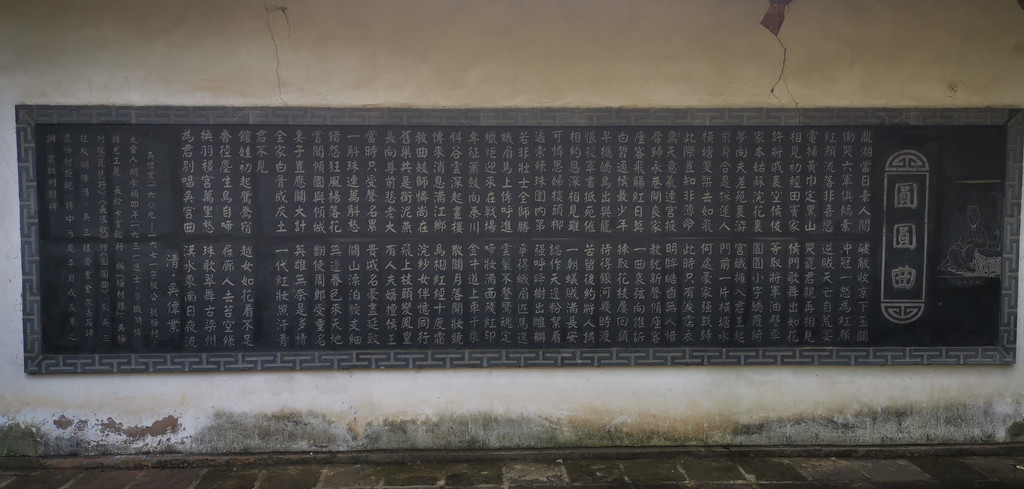 圓圓曲
鼎湖當日棄人間 破敵收京下玉關
慟哭六軍俱縞素 沖冠一怒為紅顏
紅顏流落非吾戀 逆賊天亡自荒宴
電掃黃巾定黑山 哭罷君親再相見
相見初經田竇家 侯門歌舞出如花
許將戚裏空侯伎 等取將軍油壁車
家本姑蘇浣花裏 圓圓小字嬌羅綺
夢向夫差苑裏游 宮娥擁入君王起
前身合是採蓮人 門前一片橫塘水
橫塘雙槳去如飛 何處豪家強載歸
此際豈知非薄命 此時只有淚沾衣
薰天意氣連宮掖 明眸皓齒無人惜
奪歸永巷閉良家 教就新聲傾座客
座客飛觴紅日暮 一曲哀弦向誰訴
白皙通侯最少年 揀取花枝屢回顧
早攜嬌鳥出樊籠 待得銀河幾時渡
恨殺軍書抵死催 苦留後約將人誤
相約恩深相見難 一朝蟻賊滿長安
可憐思婦樓頭柳 認作天邊粉絮看
遍索綠珠圍內第 強呼絳樹出雕欄
若非壯士全師勝 爭得蛾眉匹馬還
蛾眉馬上傳呼進 雲鬟不整驚魂定
蠟炬迎來在戰場 啼妝滿面殘紅印
專征簫鼓向秦川 金牛道上車千乘
斜谷雲深起畫樓 散關月落開妝鏡
傳來消息滿江鄉 烏桕紅經十度霜
教曲妓師憐尚在 浣紗女伴憶同行
舊巢共是銜泥燕 飛上枝頭變鳳凰
長向尊前悲老大 有人夫婿擅侯王
當時只受聲名累 貴戚名豪盡延致
一斛珠連萬斛愁 關山漂泊腰支細
錯怨狂風揚落花 無邊春色來天地
嘗聞傾國與傾城 翻使周郎受重名
妻子豈應關大計 英雄無奈是多情
全家白骨成灰土 一代紅妝照汗青
君不見
館娃初起鴛鴦宿 越女如花看不足
香徑塵生鳥自啼 屧廊人去苔空綠
換羽移宮萬里愁 珠歌翠舞古梁州
為君別唱吳宮曲 漢水東南日夜流
清 吳偉業